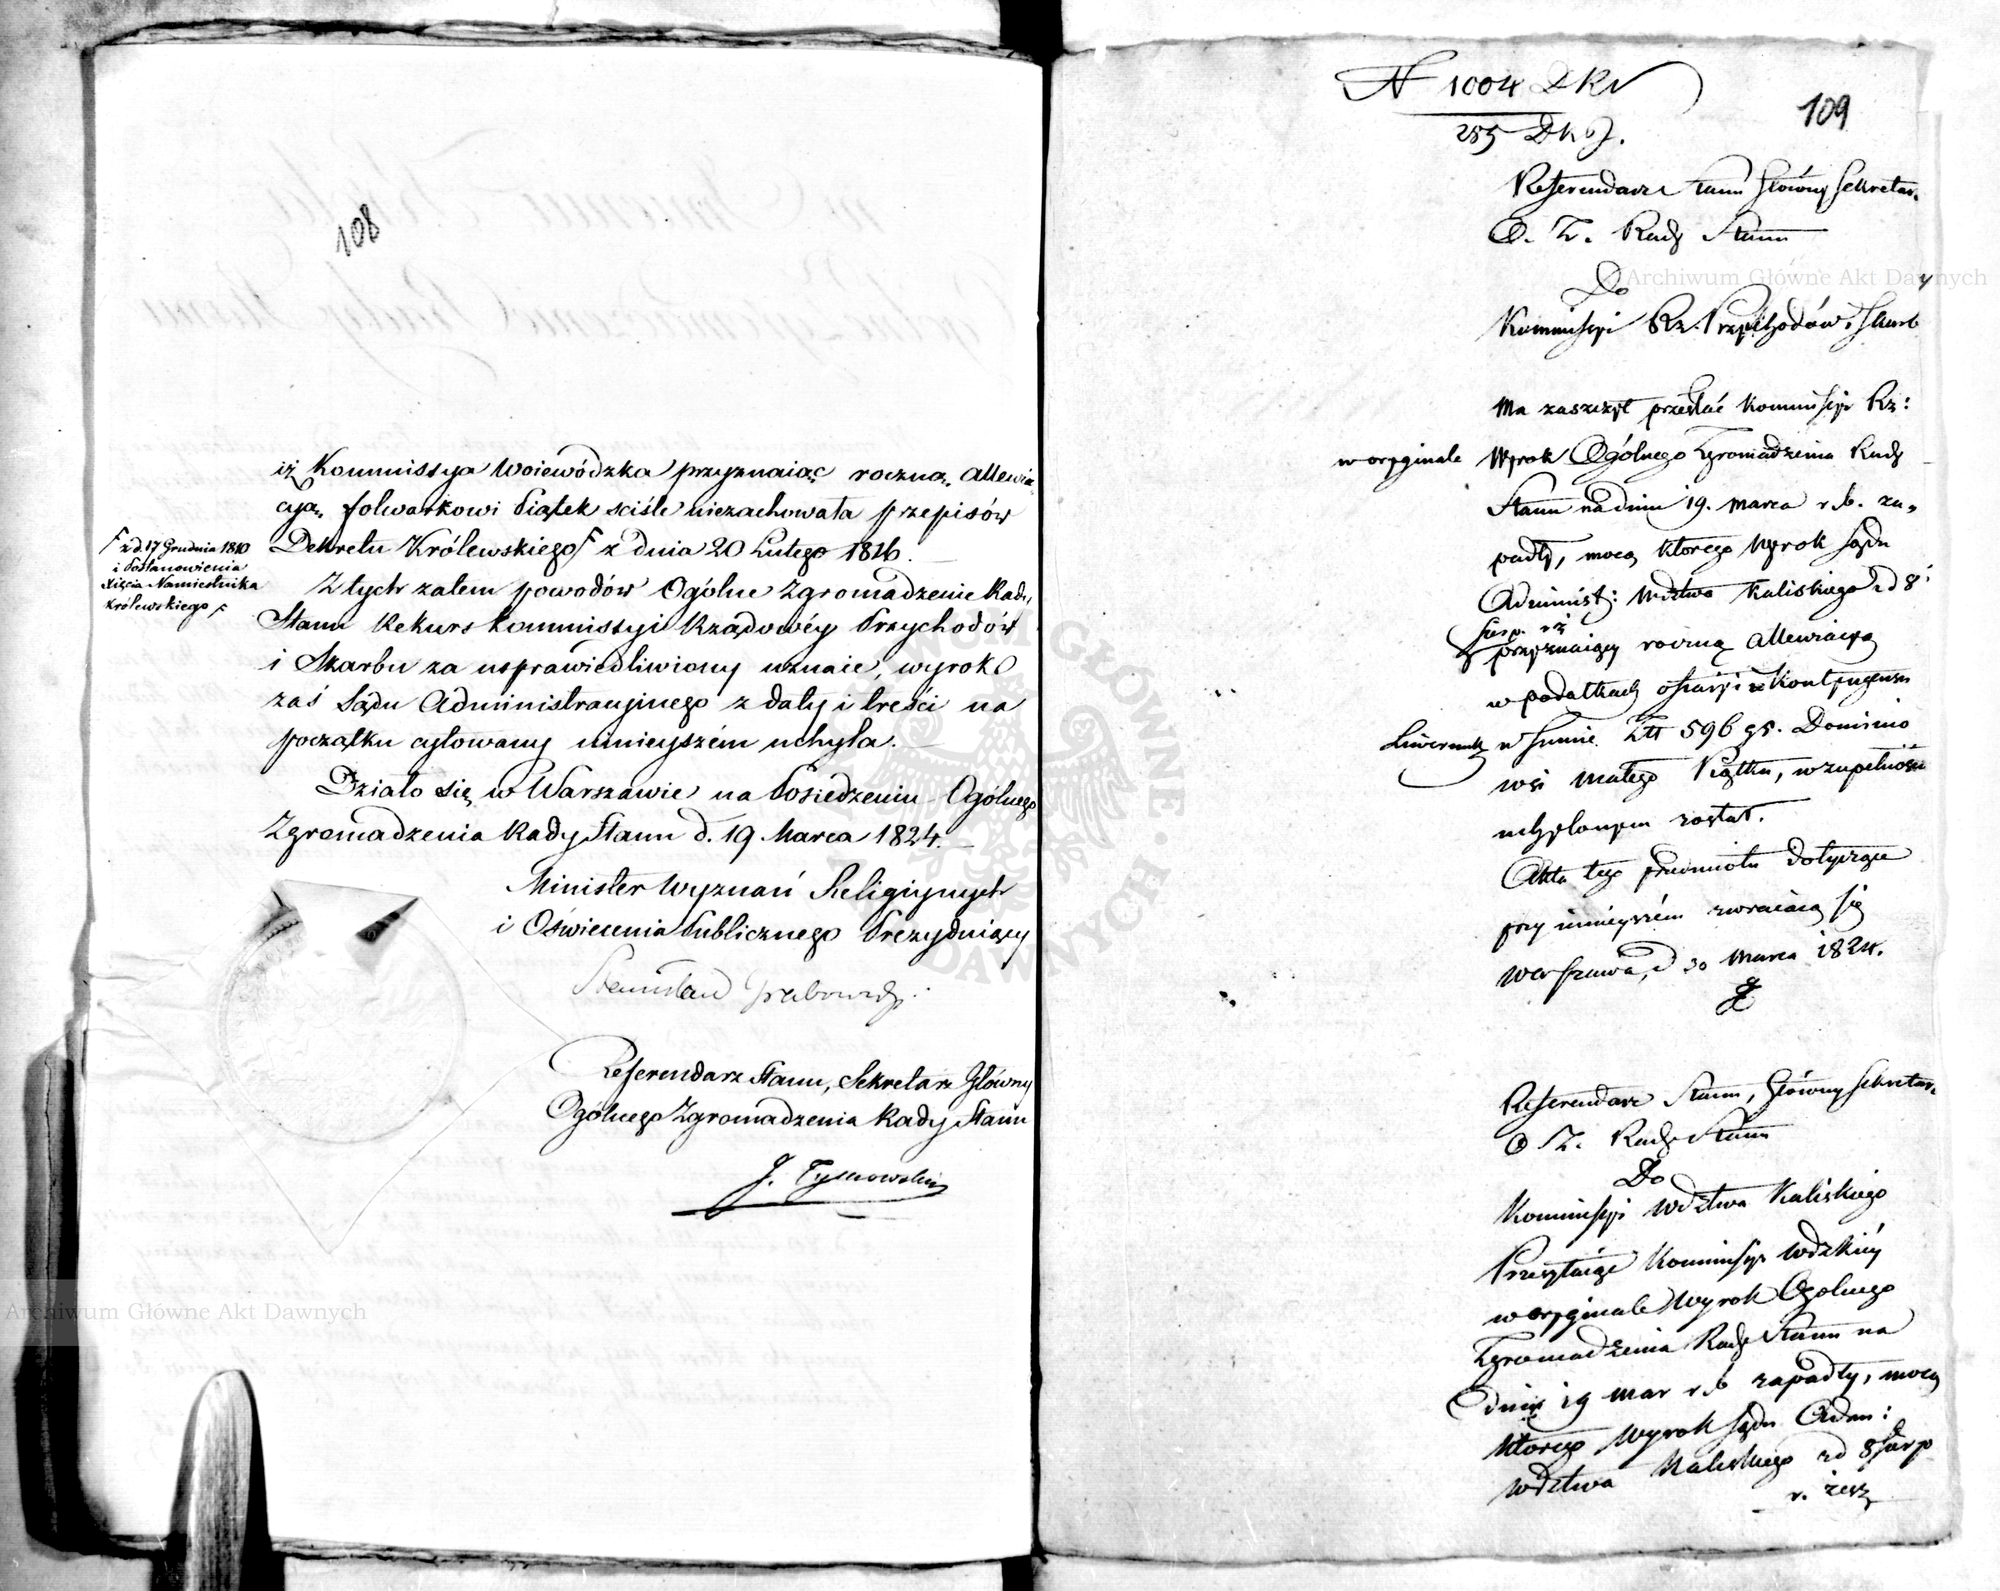 108
iż Kommissya Woiewódzka przyznaiąc roczną allewia-
cyą folwarkowi Piątek sciśle niezachowała przepisów
Dekretu Królewskiego z dnia 20 Lutego 1816.
z d. 17 Grudnia 1810
i Postanowienia
Xięcia Namiestnika
Królewskiego
Z tych zatem powodów Ogólne Zgromadzenie Rady
Stanu Rekurs Kommissyi Rządowéy Przychodów
i Skarbu za usprawiedliwiony uznaie, wyrok
zaś Sądu Administracyinego z daty i treści na
początku cytowany ninieyszém uchyla.
Działo się w Warszawie na Posiedzeniu Ogólnego
Zgromadzenia Rady Stanu d. 19 Marca 1824.
Minister Wyznań Religiynych
i Oświecenia Publicznego Prezyduiący
Stanisław Grabowski
Referendarz Stanu, Sekretarz Główny
Ogólnego Zgromadzenia Rady Stanu
J. Tymowski
N 1004 DKN
285 DKJ.
109
Referendarz Stanu Główny Sekretar.
O. Z. Rady Stanu
Do
Kommissyi Rz. Przychodów i Skarb
Ma zaszczyt przesłać Kommissyi Rz:
w oryginale Wyrok Ogólnego Zgromadzenia Rady
Stanu na dniu 19. marca r. b. za-
padły, mocą którego Wyrok Sądu
Administ: Wdztwa Kaliskiego z d 8
Sierp. rz
przyznaiący roczną allewiacyą
w podatkach ofiary i Kontyngensu
Liwerunk w Summie Złł 596 gr. Dominio
wsi Małego Piątku, w zupełności
uchylonym został.
Akta tego przedmiotu dotyczące
przy ninieyszém zwracaią się
Warszawa, d 30 Marca 1824.
Referendarz Stanu, Główny Sekretar.
O Z. Rady Stanu
Do
Kommissyi Wdztwa Kaliskiego
Przesyłaiąc Kommissyi Wdzkiéy
w oryginale Wyrok Ogólnego
Zgromadzenia Rady Stanu na
dniu 19 Mar r. b zapadły, mocą
którego Wyrok Sądu Adm:
Wdztwa Kaliskiego z d 8 Sierp
r. zesz
Archiwum Główne Akt Dawnych
Archiwum Główne Akt Dawnych
ARCHIWUM GŁÓWNE AKT DAWNYCH